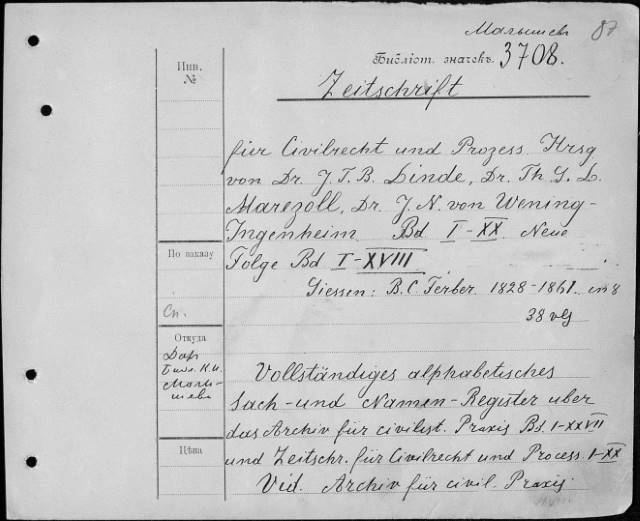 Малышев 87
Библіот. значекъ 3708.
Инв.
№
Zeitschrift
für Civilrecht und Prozess. Hrsg
von Dr. J. T. B. Linde, Dr. Th. G. L.
Marezoll, Dr. J. N. von Wening-
Ingenheim. Bd I-XX. Neue
Folge Bd I-XVIII
По заказу
Giessen: B. C. Ferber. 1828-1861. in 8
Сп.
38 vlg
Откуда
Дар
Библ. К. И.
Малы-
шева
Vollständiges alphabetisches
Sach- und Namen-Register uber
das Archiv für civilist. Praxis Bd. I-XXVII
Цѣна
und Zeitschr. für Civilrecht und Process. I-XX
Vid. Archiv für civil. Praxis.